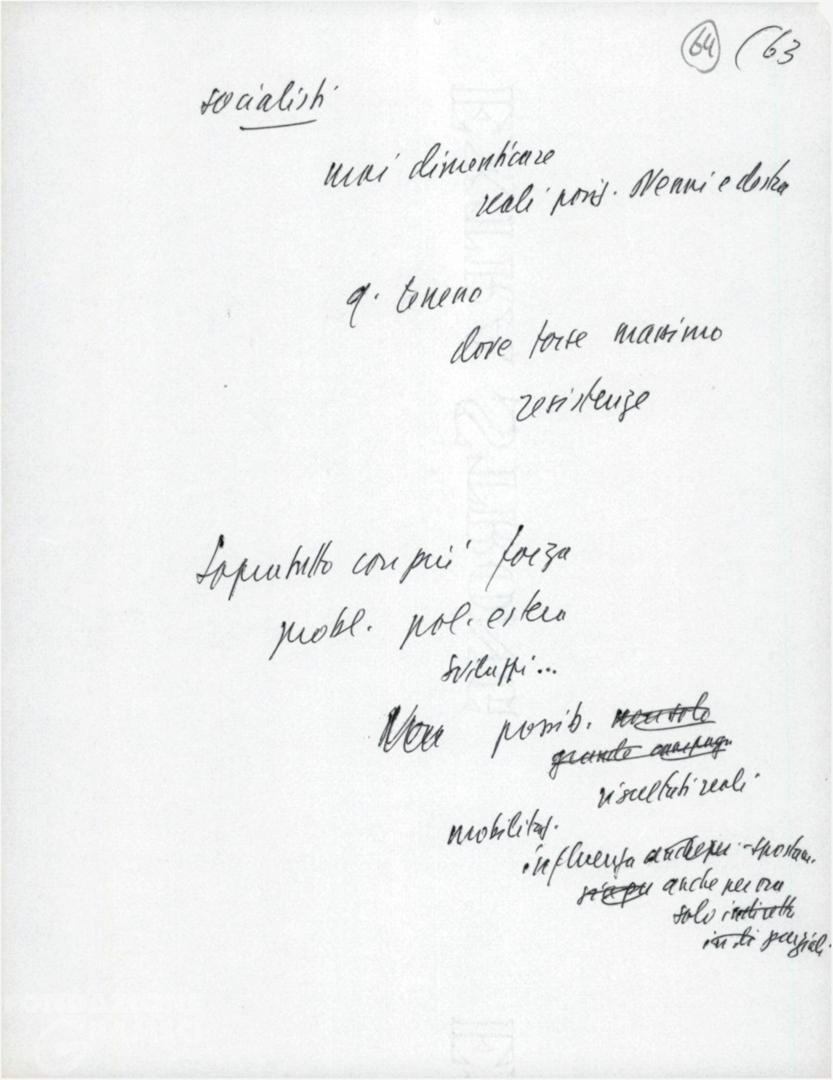 64 (63
socialisti
mai dimenticare
reali posiz. Nenni e destra
q. terreno
dove forse massimo
resistenze
Sopratutto con più forza
probl. pol. estera
sviluppi...
Non possib. non solo
grande campagn.
risultati reali
mobilitaz.
influenza anche per spostam.
anche per ora
solo indiretti
parziali.